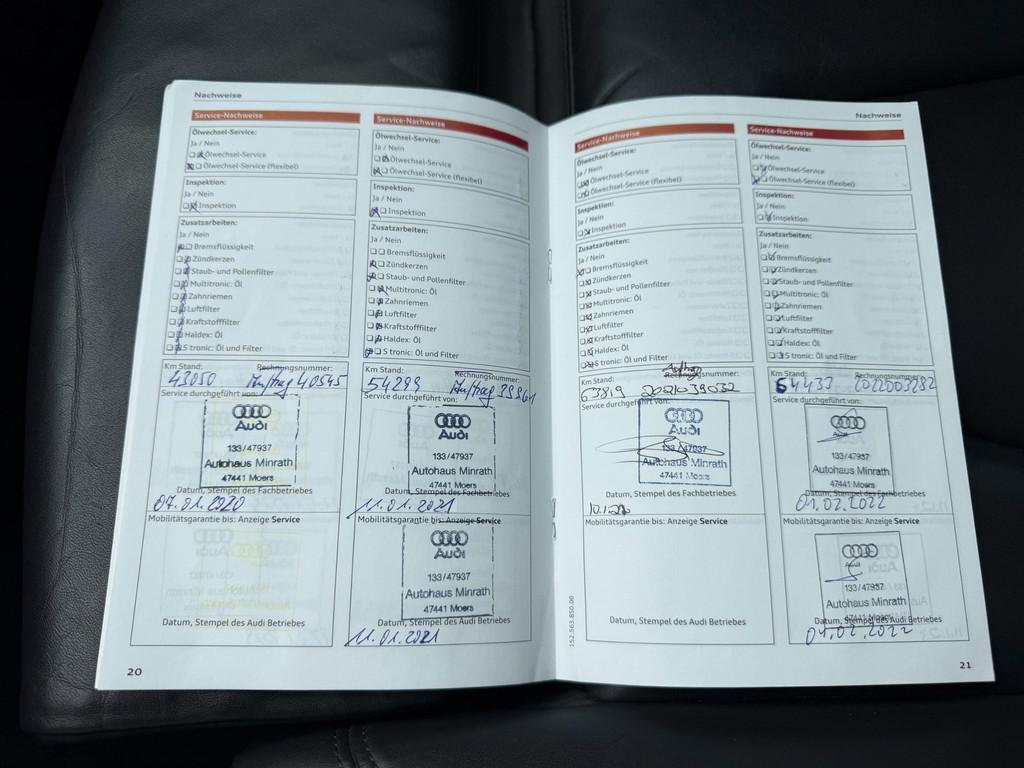 Nachweise
Service-Nachweise
Ölwechsel-Service:
Ja / Nein
Ölwechsel-Service
Ölwechsel-Service (flexibel)
Inspektion:
Ja / Nein
Inspektion
Zusatzarbeiten:
Ja / Nein
Bremsflüssigkeit
Zündkerzen
Staub- und Pollenfilter
Multitronic: Öl
Zahnriemen
Luftfilter
Kraftstofffilter
Haldex: Öl
S tronic: Öl und Filter
Km Stand: Rechnungsnummer:
43050 Auftrag 40545
Service durchgeführt von:
Audi
133/47937
Autohaus Minrath
47441 Moers
Datum, Stempel des Fachbetriebes
07.01.2020
Mobilitätsgarantie bis: Anzeige Service
Datum, Stempel des Audi Betriebes
20
Service-Nachweise
Ölwechsel-Service:
Ja / Nein
Ölwechsel-Service
Ölwechsel-Service (flexibel)
Inspektion:
Ja / Nein
Inspektion
Zusatzarbeiten:
Ja / Nein
Bremsflüssigkeit
Zündkerzen
Staub- und Pollenfilter
Multitronic: Öl
Zahnriemen
Luftfilter
Kraftstofffilter
Haldex: Öl
S tronic: Öl und Filter
Km Stand: Rechnungsnummer:
54299 Auftrag
Service durchgeführt von:
Audi
133/47937
Autohaus Minrath
47441 Moers
Datum, Stempel des Fachbetriebes
11.01.2021
Mobilitätsgarantie bis: Anzeige Service
Audi
133/47937
Autohaus Minrath
47441 Moers
Datum, Stempel des Audi Betriebes
11.01.2021
Service-Nachweise
Ölwechsel-Service:
Ja / Nein
Ölwechsel-Service
Ölwechsel-Service (flexibel)
Inspektion:
Ja / Nein
Inspektion
Zusatzarbeiten:
Ja / Nein
Bremsflüssigkeit
Zündkerzen
Staub- und Pollenfilter
Multitronic: Öl
Zahnriemen
Luftfilter
Kraftstofffilter
Haldex: Öl
S tronic: Öl und Filter
Auftrag
Km Stand: Rechnungsnummer:
2021039032
Service durchgeführt von:
Audi
133/47937
Autohaus Minrath
47441 Moers
Datum, Stempel des Fachbetriebes
Mobilitätsgarantie bis: Anzeige Service
Datum, Stempel des Audi Betriebes
152.563.850.00
Nachweise
Service-Nachweise
Ölwechsel-Service:
Ja / Nein
Ölwechsel-Service
Ölwechsel-Service (flexibel)
Inspektion:
Ja / Nein
Inspektion
Zusatzarbeiten:
Ja / Nein
Bremsflüssigkeit
Zündkerzen
Staub- und Pollenfilter
Multitronic: Öl
Zahnriemen
Luftfilter
Kraftstofffilter
Haldex: Öl
S tronic: Öl und Filter
Km Stand: Rechnungsnummer:
64433 2022003282
Service durchgeführt von:
Audi
133/47937
Autohaus Minrath
47441 Moers
Datum, Stempel des Fachbetriebes
01.02.2022
Mobilitätsgarantie bis: Anzeige Service
Audi
133/47937
Autohaus Minrath
47441 Moers
Datum, Stempel des Audi Betriebes
01.02.2022
21